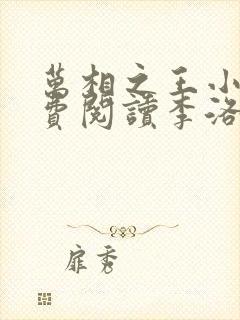 萬相之王小
費閱讀李洛
扉秀